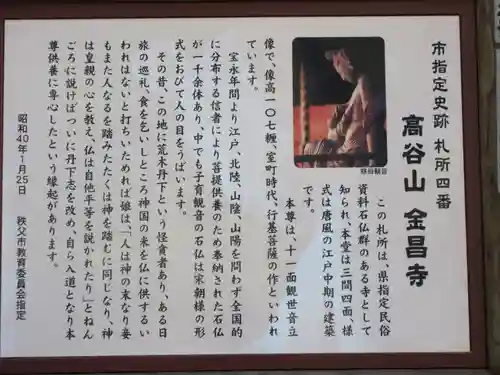 市指定史跡 札所四番
高谷山 金昌寺
この札所は、県指定民俗
資料石仏群のある寺として
知られ、本堂は三間四面、様
式は唐風の江戸中期の建築
です。
本尊は、十一面観世音立
像で、像高一〇七糎、室町時代、行基菩薩の作といわれ
ています。
宝永年間より江戸、北陸、山陰、山陽を問わず全国的
に分布する信者により菩提供養のため奉納された石仏
が一千余体あり、中でも子育観音の石仏は宋朝様の形
式をおびて人の目をうばいます。
その昔、この地に荒木丹下という怪賁者あり、ある日
旅の巡礼、食を乞いしところ神国の米を仏に供するい
われはないと打ちいためれば娘は、「人は神の末なり妾
もまた人なるを踏みたたくは神を踏むに同じなり、神
は皇親の心を教え、仏は自他平等を説かれたり」とねん
ごろに説けばついに丹下志を改め、自ら入道となり本
尊供養に専心したという縁起があります。
昭和40年1月25日 秩父市教育委員会指定
慈母観音